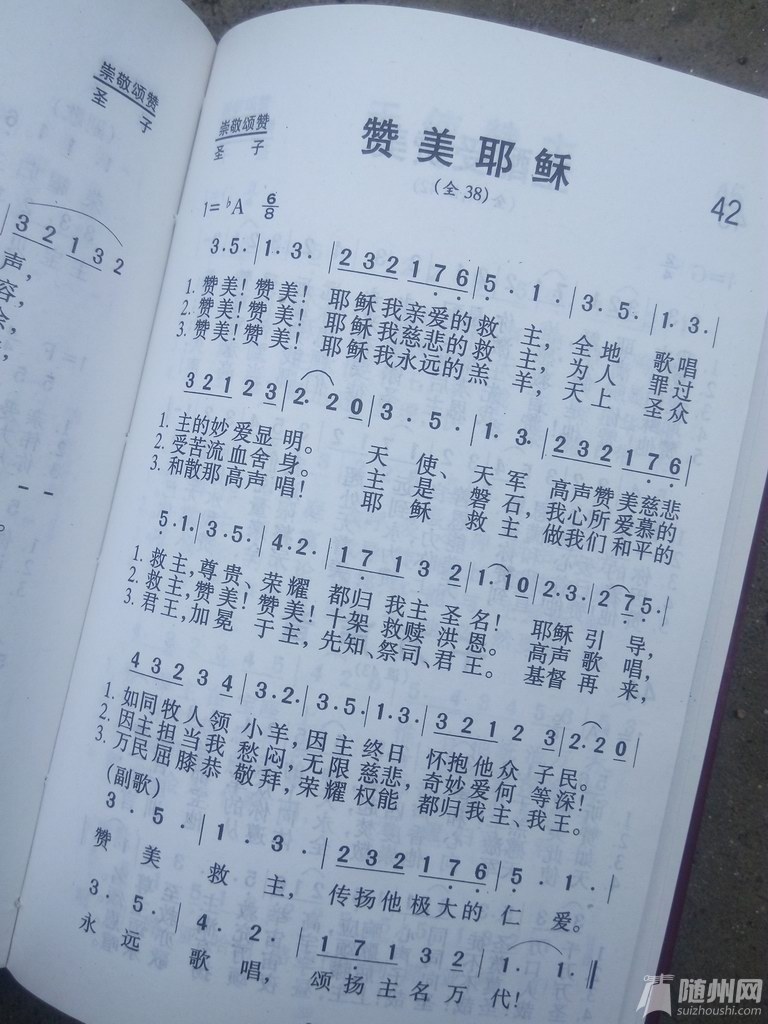 崇敬颂赞
圣 子
3 2 1 3 2
声，
容，
崇敬颂赞
圣 子
赞美耶稣
(全38)
42
1=♭A 6/8
3·5·|1·3·|2 3 2 1 7 6|5·1·|3·5·|1·3·|
1. 赞美！赞美！耶稣我亲爱的救主，全地歌唱
2. 赞美！赞美！耶稣我慈悲的救主，为人罪过
3. 赞美！赞美！耶稣我永远的羔羊，天上圣众
3 2 1 2 3|2·2 0|3·5·|1·3·|2 3 2 1 7 6|
1. 主的妙爱显明。天使、天军高声赞美慈悲
2. 受苦流血舍身。主是磐石，我心所爱慕的
3. 和散那高声唱！耶稣救主做我们和平的
5·1·|3·5·|4·2·|1 7 1 3 2|1·1 0|2·3·|2 7 5·|
1. 救主，尊贵、荣耀都归我主圣名！耶稣引导，
2. 救主，赞美！赞美！十架救赎洪恩。高声歌唱，
3. 君王，加冕于主，先知、祭司、君王。基督再来，
4 3 2 3 4|3·2·|3·5·|1·3·|3 2 1 2 3|2·2 0|
1. 如同牧人领小羊，因主终日怀抱他众子民。
2. 因主担当我愁闷，无限慈悲，奇妙爱何等深！
3. 万民屈膝恭敬拜，荣耀权能都归我主、我王。
(副歌)
3·5·|1·3·|2 3 2 1 7 6|5·1·|
赞美救主，传扬他极大的仁爱。
3·5·|4·2·|1 7 1 3 2|1·1·‖
永远歌唱，颂扬主名万代！
随州网
suizhoushi.com